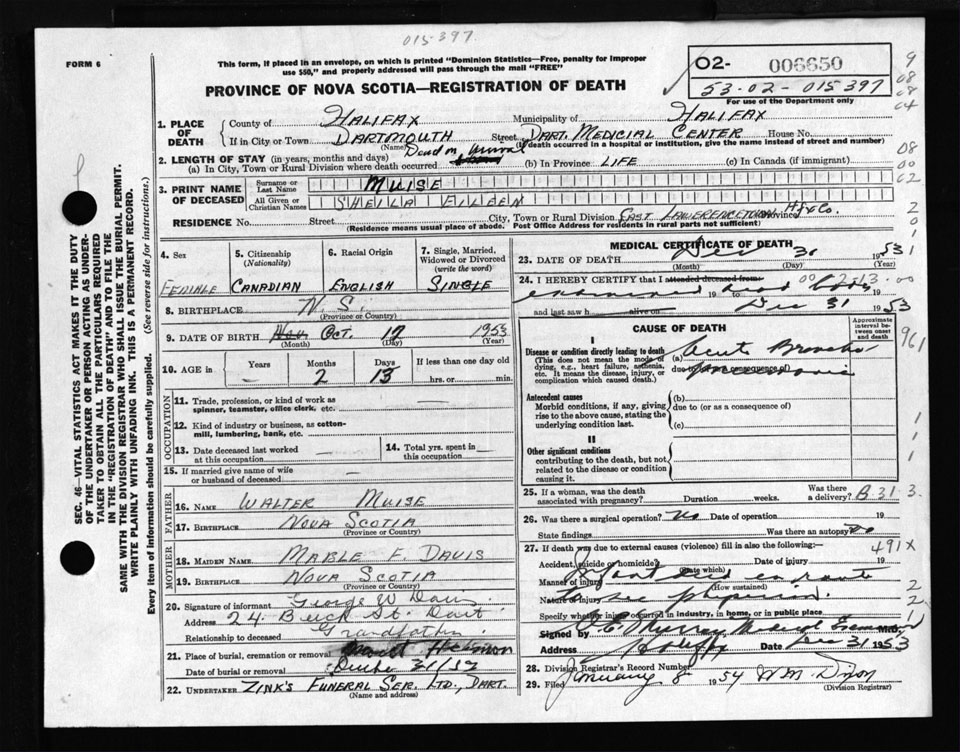 015-397
FORM 6
This form, if placed in an envelope, on which is printed "Dominion Statistics—Free, penalty for improper
use $50," and properly addressed will pass through the mail "FREE"
O2- 006650
53-02-015397
For use of the Department only
PROVINCE OF NOVA SCOTIA—REGISTRATION OF DEATH
9
08
08
04
08
00
02
2
0
1
1. PLACE OF DEATH
County of HALIFAX Municipality of HALIFAX
If in City or Town DARTMOUTH Street DART. MEDICIAL CENTER House No.
(Name) (If death occurred in a hospital or institution, give the name instead of street and number)
2. LENGTH OF STAY (in years, months and days) Dead on arrival
(a) In City, Town or Rural Division where death occurred (b) In Province LIFE (c) In Canada (if immigrant)
3. PRINT NAME OF DECEASED
Surname or Last Name MUISE
All Given or Christian Names SHEILA EILEEN
RESIDENCE No. Street City, Town or Rural Division EAST LAWERENCETOWN Province Hfx Co.
(Residence means usual place of abode. Post Office Address for residents in rural parts not sufficient)
SEC. 46—VITAL STATISTICS ACT MAKES IT THE DUTY
OF THE UNDERTAKER OR PERSON ACTING AS UNDER-
TAKER TO OBTAIN ALL THE PARTICULARS REQUIRED
IN THE "REGISTRATION OF DEATH" AND TO FILE THE
SAME WITH THE DIVISION REGISTRAR WHO SHALL ISSUE THE BURIAL PERMIT.
WRITE PLAINLY WITH UNFADING INK. THIS IS A PERMANENT RECORD.
Every item of information should be carefully supplied. (See reverse side for instructions.)
4. Sex FEMALE
5. Citizenship (Nationality) CANADIAN
6. Racial Origin ENGLISH
7. Single, Married, Widowed or Divorced (write the word) SINGLE
8. BIRTHPLACE N.S.
(Province or Country)
9. DATE OF BIRTH Nov. OCT. 17 1953
(Month) (Day) (Year)
10. AGE in Years — Months 2 Days 13 If less than one day old
hrs. or min.
OCCUPATION
11. Trade, profession, or kind of work as
spinner, teamster, office clerk, etc. —
12. Kind of industry or business, as cotton-
mill, lumbering, bank, etc. —
13. Date deceased last worked
at this occupation —
14. Total yrs. spent in
this occupation —
15. If married give name of wife
or husband of deceased —
FATHER
16. Name WALTER MUISE
17. Birthplace NOVA SCOTIA
(Province or Country)
MOTHER
18. MAIDEN NAME MABLE F. DAVIS
19. Birthplace NOVA SCOTIA
(Province or Country)
20. Signature of informant George W Davis
Address 24 Beech St. Dart.
Relationship to deceased Grandfather.
21. Place of burial, cremation or removal Mount Hermon
Date of burial or removal 31/53
22. UNDERTAKER ZINK'S FUNERAL SER. LTD., DART.
(Name and address)
MEDICAL CERTIFICATE OF DEATH
23. DATE OF DEATH Dec 30 1953
(Month) (Day) (Year)
24. I HEREBY CERTIFY that I attended deceased from
examined 19 to dead body 19
and last saw h alive on Dec 31 1953
CAUSE OF DEATH
Approximate interval between onset and death
I
Disease or condition directly leading to death
(This does not mean the mode of
dying, e.g., heart failure, asthenia,
etc. It means the disease, injury, or
complication which caused death.)
(a) Acute Broncho
due to (or as a consequence of) pneumonia
961
Antecedent causes
Morbid conditions, if any, giving
rise to the above cause, stating the
underlying condition last.
(b)
due to (or as a consequence of)
(c)
II
Other significant conditions
contributing to the death, but not
related to the disease or condition
causing it.
1
1
1
25. If a woman, was the death
associated with pregnancy? Duration weeks. Was there
a delivery? B 31 3
26. Was there a surgical operation? No Date of operation 19
State findings Was there an autopsy? No
27. If death was due to external causes (violence) fill in also the following:— 491X
Accident, suicide or homicide? Date of injury 19
(State which)
Manner of injury Infant died en route
(How sustained)
Nature of injury to see physician.
Specify whether injury occurred in industry, in home, or in public place
2
2
1
Signed by Murray Medical Examiner M.D.
Address Halifax Date Dec 31 1953
28. Division Registrar's Record Number
29. Filed January 8 1954 W.M. Dixon
(Division Registrar)